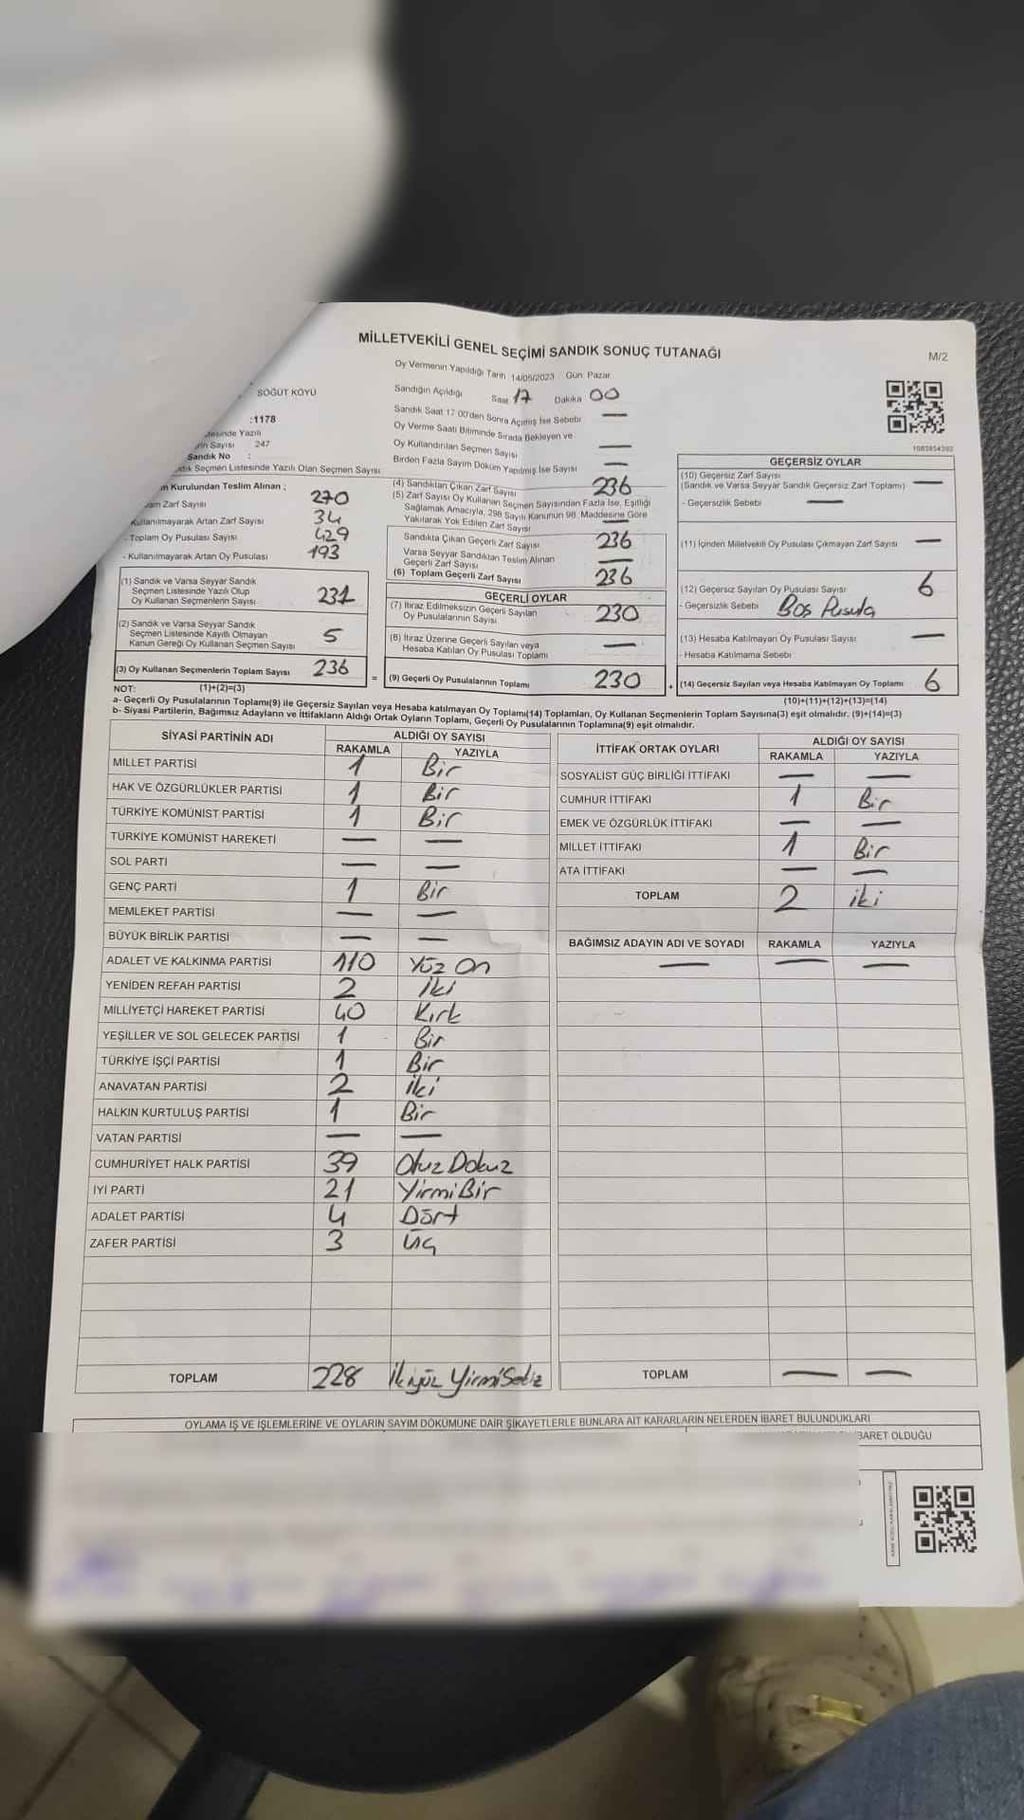 MİLLETVEKİLİ GENEL SEÇİMİ SANDIK SONUÇ TUTANAĞI
M/2
Oy Vermenin Yapıldığı Tarih 14/05/2023 Gün Pazar
SÖĞÜT KÖYÜ
Sandığın Açıldığı Saat 17 Dakika 00
:1178
Sandık Saat 17:00'den Sonra Açılmış İse Sebebi —
Yazılı
Sayısı 247
Oy Verme Saati Bitiminde Sırada Bekleyen ve
Oy Kullandırılan Seçmen Sayısı —
Sandık No :
Birden Fazla Sayım Döküm Yapılmış İse Sayısı —
Seçmen Listesinde Yazılı Olan Seçmen Sayısı
Kurulundan Teslim Alınan ;
Zarf Sayısı 270
Kullanılmayarak Artan Zarf Sayısı 34
- Toplam Oy Pusulası Sayısı 429
- Kullanılmayarak Artan Oy Pusulası 193
(1) Sandık ve Varsa Seyyar Sandık
Seçmen Listesinde Yazılı Olup
Oy Kullanan Seçmenlerin Sayısı 231
(2) Sandık ve Varsa Seyyar Sandık
Seçmen Listesinde Kayıtlı Olmayan
Kanun Gereği Oy Kullanan Seçmen Sayısı 5
(3) Oy Kullanan Seçmenlerin Toplam Sayısı 236
(1)+(2)=(3)
(4) Sandıktan Çıkan Zarf Sayısı 236
(5) Zarf Sayısı Oy Kullanan Seçmen Sayısından Fazla İse, Eşitliği
Sağlamak Amacıyla, 298 Sayılı Kanunun 98. Maddesine Göre
Yakılarak Yok Edilen Zarf Sayısı —
Sandıkta Çıkan Geçerli Zarf Sayısı 236
Varsa Seyyar Sandıktan Teslim Alınan
Geçerli Zarf Sayısı —
(6) Toplam Geçerli Zarf Sayısı 236
GEÇERLİ OYLAR
(7) İtiraz Edilmeksizin Geçerli Sayılan
Oy Pusulalarının Sayısı 230
(8) İtiraz Üzerine Geçerli Sayılan veya
Hesaba Katılan Oy Pusulası Toplamı —
= (9) Geçerli Oy Pusulalarının Toplamı 230
GEÇERSİZ OYLAR
(10) Geçersiz Zarf Sayısı
(Sandık ve Varsa Seyyar Sandık Geçersiz Zarf Toplamı) —
- Geçersizlik Sebebi —
(11) İçinden Milletvekili Oy Pusulası Çıkmayan Zarf Sayısı —
(12) Geçersiz Sayılan Oy Pusulası Sayısı 6
- Geçersizlik Sebebi Boş Pusula
(13) Hesaba Katılmayan Oy Pusulası Sayısı —
- Hesaba Katılmama Sebebi
(14) Geçersiz Sayılan veya Hesaba Katılmayan Oy Toplamı 6
(10)+(11)+(12)+(13)=(14)
NOT:
a- Geçerli Oy Pusulaları Toplamı(9) ile Geçersiz Sayılan veya Hesaba katılmayan Oy Toplamı(14) Toplamları, Oy Kullanan Seçmenlerin Toplam Sayısına(3) eşit olmalıdır. (9)+(14)=(3)
b- Siyasi Partilerin, Bağımsız Adayların ve İttifakların Aldığı Ortak Oyların Toplamı, Geçerli Oy Pusulalarının Toplamına(9) eşit olmalıdır.
SİYASİ PARTİNİN ADI ALDIĞI OY SAYISI
RAKAMLA YAZIYLA
MİLLET PARTİSİ 1 Bir
HAK VE ÖZGÜRLÜKLER PARTİSİ 1 Bir
TÜRKİYE KOMÜNİST PARTİSİ 1 Bir
TÜRKİYE KOMÜNİST HAREKETİ — —
SOL PARTİ — —
GENÇ PARTİ 1 Bir
MEMLEKET PARTİSİ — —
BÜYÜK BİRLİK PARTİSİ — —
ADALET VE KALKINMA PARTİSİ 110 Yüz On
YENİDEN REFAH PARTİSİ 2 İki
MİLLİYETÇİ HAREKET PARTİSİ 40 Kırk
YEŞİLLER VE SOL GELECEK PARTİSİ 1 Bir
TÜRKİYE İŞÇİ PARTİSİ 1 Bir
ANAVATAN PARTİSİ 2 İki
HALKIN KURTULUŞ PARTİSİ 1 Bir
VATAN PARTİSİ — —
CUMHURİYET HALK PARTİSİ 39 Otuz Dokuz
İYİ PARTİ 21 Yirmi Bir
ADALET PARTİSİ 4 Dört
ZAFER PARTİSİ 3 Üç
TOPLAM 228 İkiyüz Yirmi Sekiz
İTTİFAK ORTAK OYLARI ALDIĞI OY SAYISI
RAKAMLA YAZIYLA
SOSYALİST GÜÇ BİRLİĞİ İTTİFAKI — —
CUMHUR İTTİFAKI 1 Bir
EMEK VE ÖZGÜRLÜK İTTİFAKI — —
MİLLET İTTİFAKI 1 Bir
ATA İTTİFAKI — —
TOPLAM 2 İki
BAĞIMSIZ ADAYIN ADI VE SOYADI RAKAMLA YAZIYLA
— — —
TOPLAM — —
OYLAMA İŞ VE İŞLEMLERİNE VE OYLARIN SAYIM DÖKÜMÜNE DAİR ŞİKAYETLERLE BUNLARA AİT KARARLARIN NELERDEN İBARET BULUNDUKLARI
BARET OLDUĞU